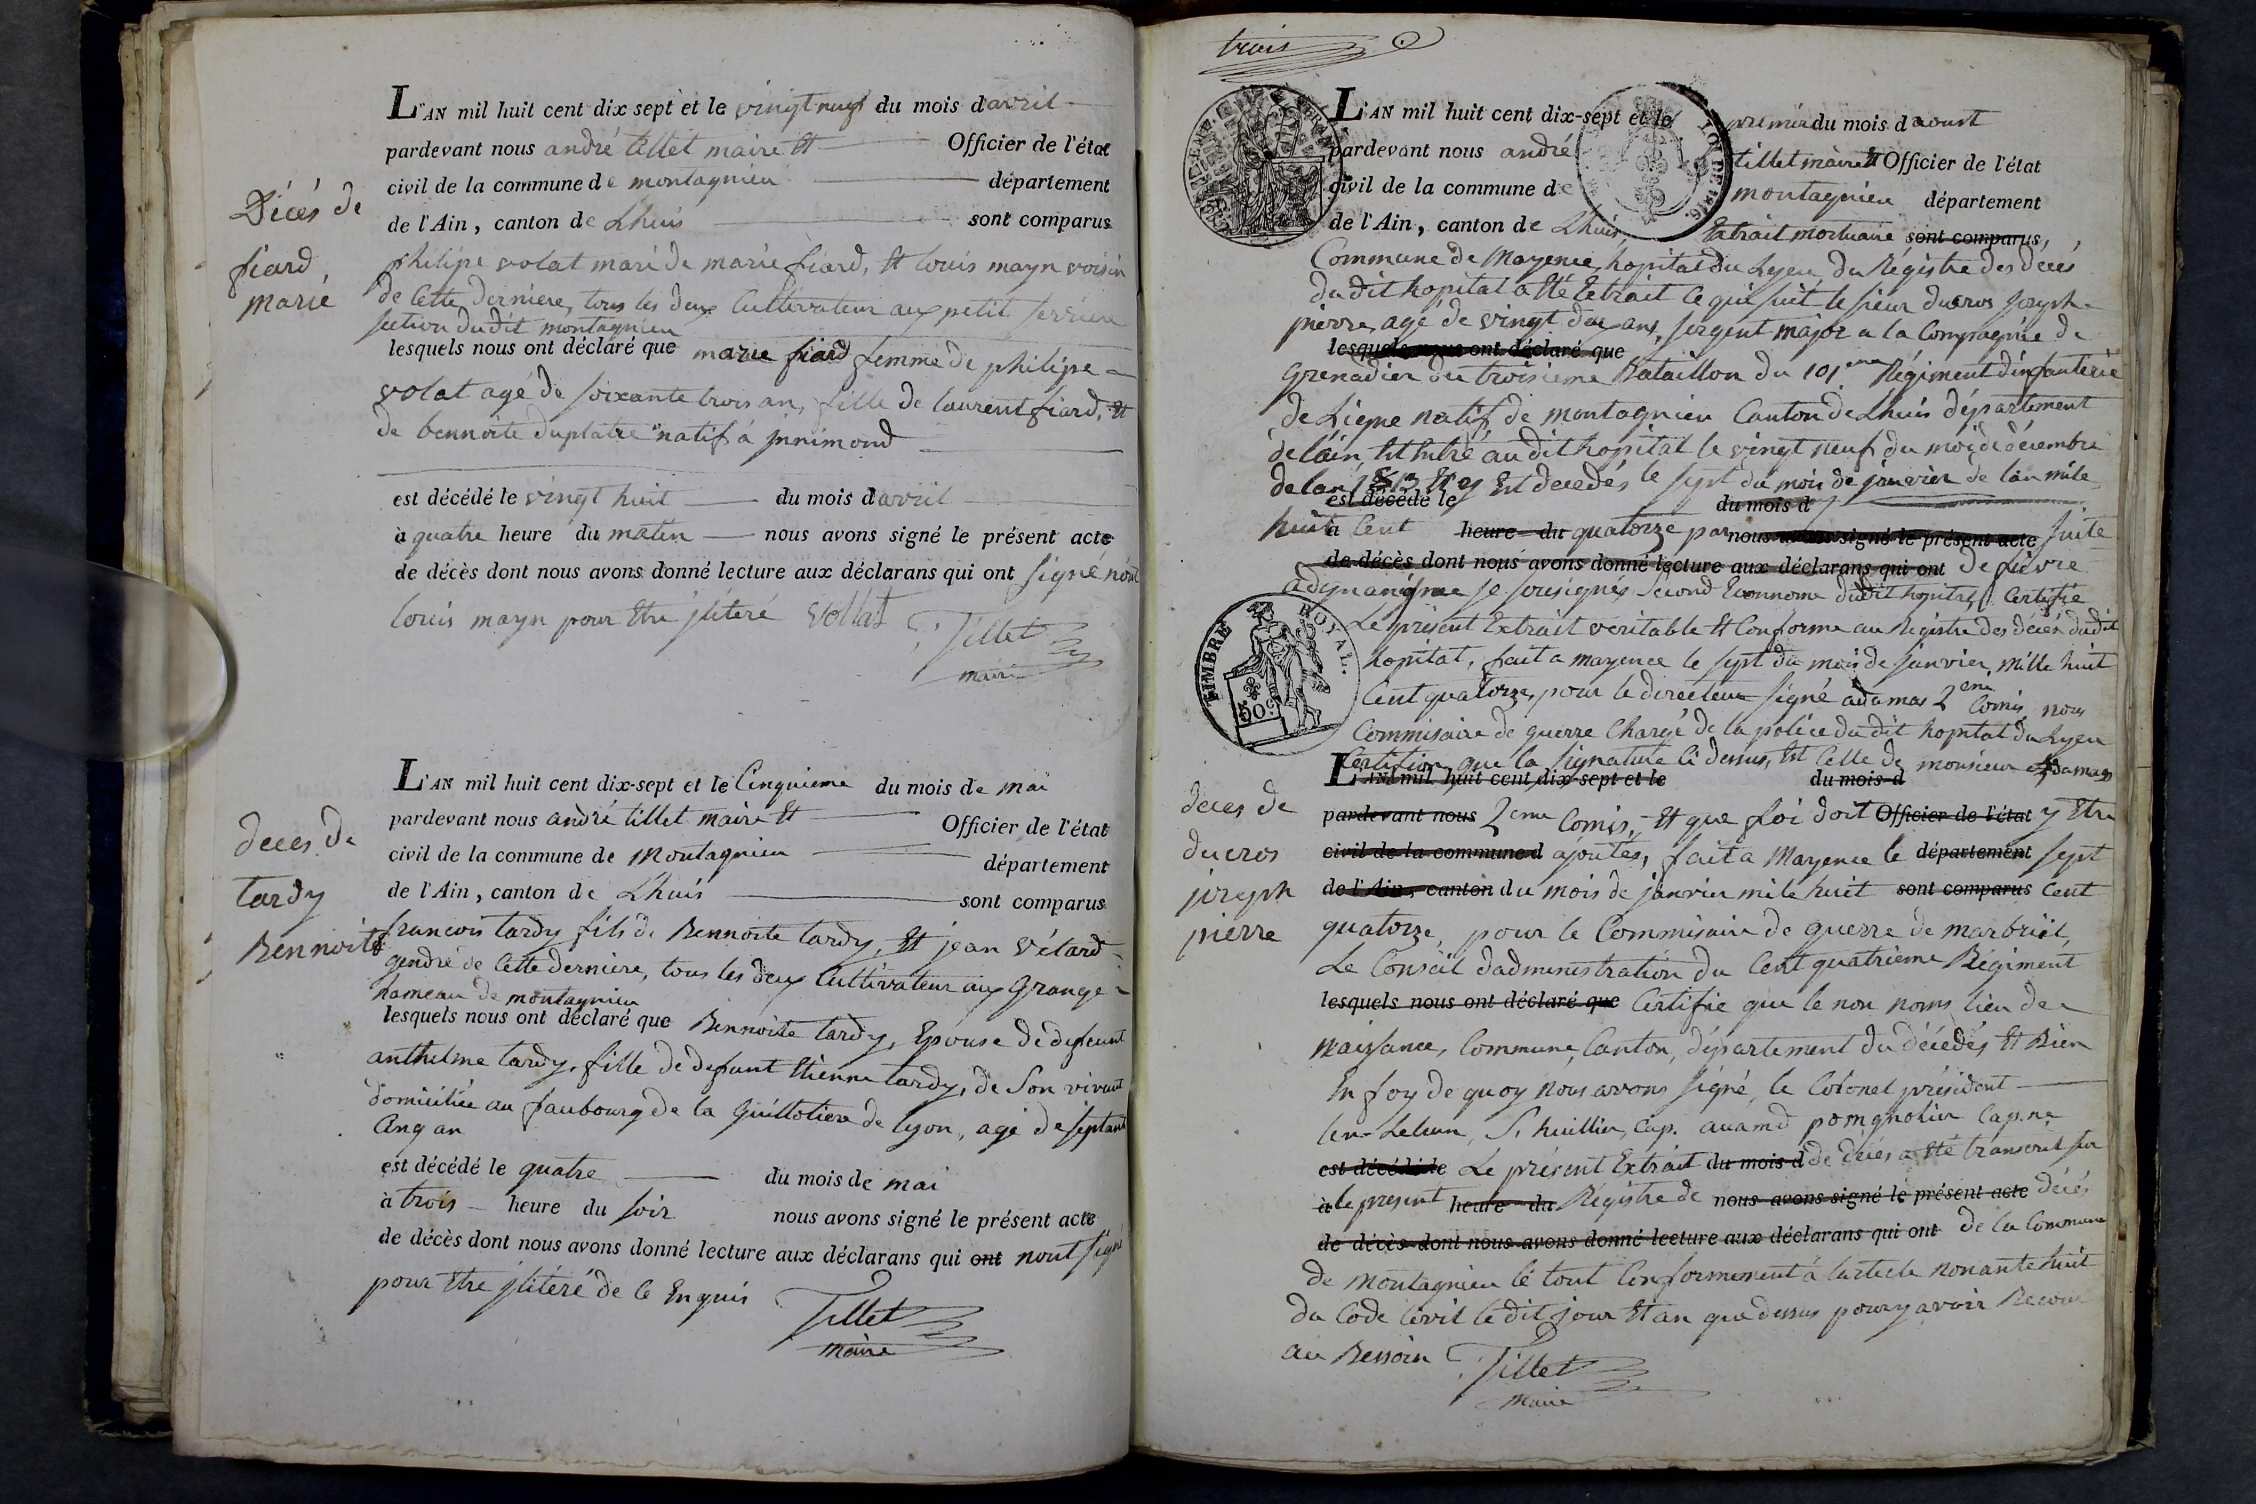 L'AN mil huit cent dix sept et le vingt neuf du mois d'avril
pardevant nous andré tillet maire et Officier de l'état
civil de la commune de montagnieu département
de l'Ain, canton de Lhuis sont comparus
Décés de
fiard,
marie
philipe volat mari de marie fiard, et louis mayn voisin
de Cette derniere, tous les deux Cultivateur au petit serriere
section dudit montagnieu
lesquels nous ont déclaré que marie fiard femme de philipe
volat agé de soixante trois an, fille de laurent fiard, et
de bennoite duplatre natif à jnnimond
est décédé le vingt huit du mois d'avril
à quatre heure du matin nous avons signé le présent acte
de décès dont nous avons donné lecture aux déclarans qui ont signé non
louis mayn pour Etre jlitéré vollat Tillet
maire
L'AN mil huit cent dix-sept et le Cinquieme du mois de mai
pardevant nous andré tillet maire et Officier de l'état
civil de la commune de Montagnieu département
de l'Ain, canton de Lhuis sont comparus
deces de
tardy
Bennoite
francois tardy fils de Bennoite tardy, Et jean Vétard
gendre de Cette derniere, tous les deux Cultivateur aux Grange
hameau de montagnieu
lesquels nous ont déclaré que Bennoite tardy, Epouse de defeunt
anthelme tardy, fille de defunt Etienne tardy, de Son vivant
domiciliée au faubourg de la Guillotiere de lyon, agé de septante
Cinq an
est décédé le quatre du mois de mai
à trois heure du soir nous avons signé le présent acte
de décès dont nous avons donné lecture aux déclarans qui ont nont signé
pour Etre jlitéré de ce Enquis Tillet
maire
trois
L'AN mil huit cent dix-sept et le premier du mois d'aoust
pardevant nous andré tillet maire et Officier de l'état
civil de la commune de montagnieu département
de l'Ain, canton de Lhuis Extrait mortuaire sont comparus,
Commune de Mayence, hopital du Lyeu du Régistre des décés
dudit hopital a Eté Extrait Ce qui suit le sieur ducros joseph
pierre, agé de vingt deux ans, sergent major a la Compagnie de
lesquels nous ont déclaré que
Grenadier du troisieme Bataillon du 101eme Régiment d'infanterie
de Ligne natif de montagnieu Canton de Lhuis département
de l'ain Et Entré audit hopital le vingt neuf du mois de décembre
de l'an 1813 Et y Est decedés le sept du mois de janvier de l'an mile
est décédé le du mois d
huit à Cent heure du quatorze par nous avons signé le présent acte suite
de décès dont nous avons donné lecture aux déclarans qui ont de fièvre
je sousignés second Econnome dudit hopital Certifie
Le présent Extrait véritable Et Conforme au Régistre des décés dudit
hopital, fait a mayence le sept du mois de janvier mille huit
Cent quatorze, pour le directeur signé adamas 2eme Comis, nous
Commisaire de guerre Chargé de la police dudit hopital du Lyeu
Certifion que la signature Ci dessus, Est Celle de monsieur adamas
TIMBRE ROYAL.
50c
L'AN mil huit cent dix-sept et le du mois d
deces de
ducros
joseph
pierre
pardevant nous 2eme Comis, Et que foi doit Officier de l'état y Etre
civil de la commune d ajoutés, fait a Mayence le département sept
de l'Ain, canton du mois de janvier mile huit sont comparus Cent
quatorze, pour le Commisaire de guerre de marbriel,
Le Conseil d'administration du Cent quatrieme Régiment
lesquels nous ont déclaré que Certifie que le non noms lieu de
Naissance, Commune, Canton, département du décédés Et Bien
En foy de quoy Nous avons signé, le Colonel président
S. huillier, cap. cap.ne
est décédé le Le présent Extrait du mois d de décés a Eté transcrit sur
à le present heure du Régistre de nous avons signé le présent acte décés
de décès dont nous avons donné lecture aux déclarans qui ont de la Commune
de montagnieu le tout Conformement à l'article nonante huit
du Code Civil le dit jour Et an que dessus pour y avoir Recour
au Bessoin Tillet
maire